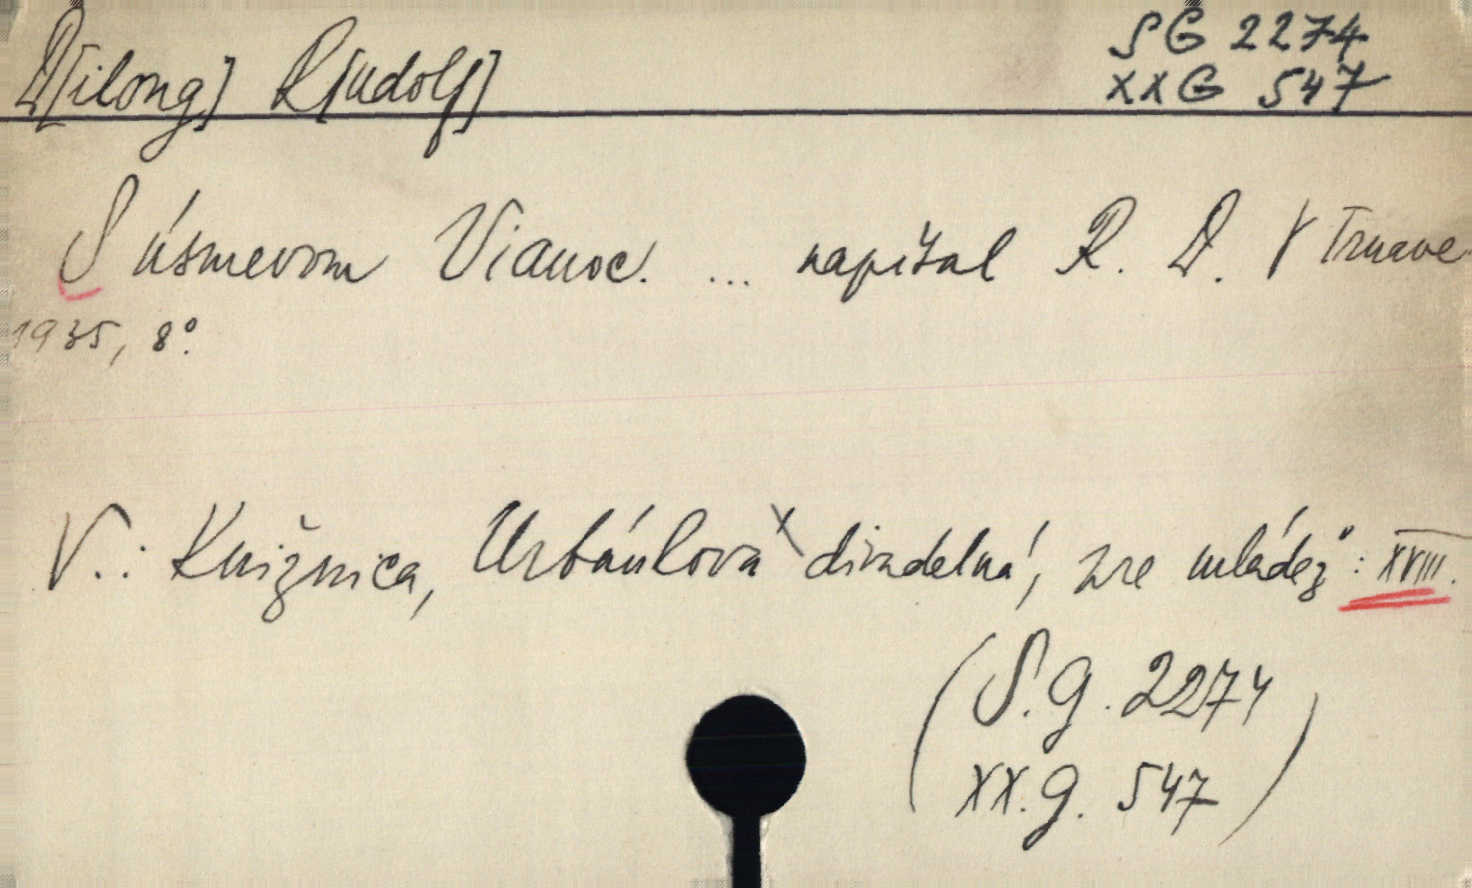 D[ilong] R[udolf]
SG 2274
XXG 547
S úsmevom Vianoc. ... napísal R. D. V Trnave
1935, 8°.
V.: Knižnica, Urbánkova divadelná, pre mládež: XVIII.
(S.G. 2274
XX.G. 547)